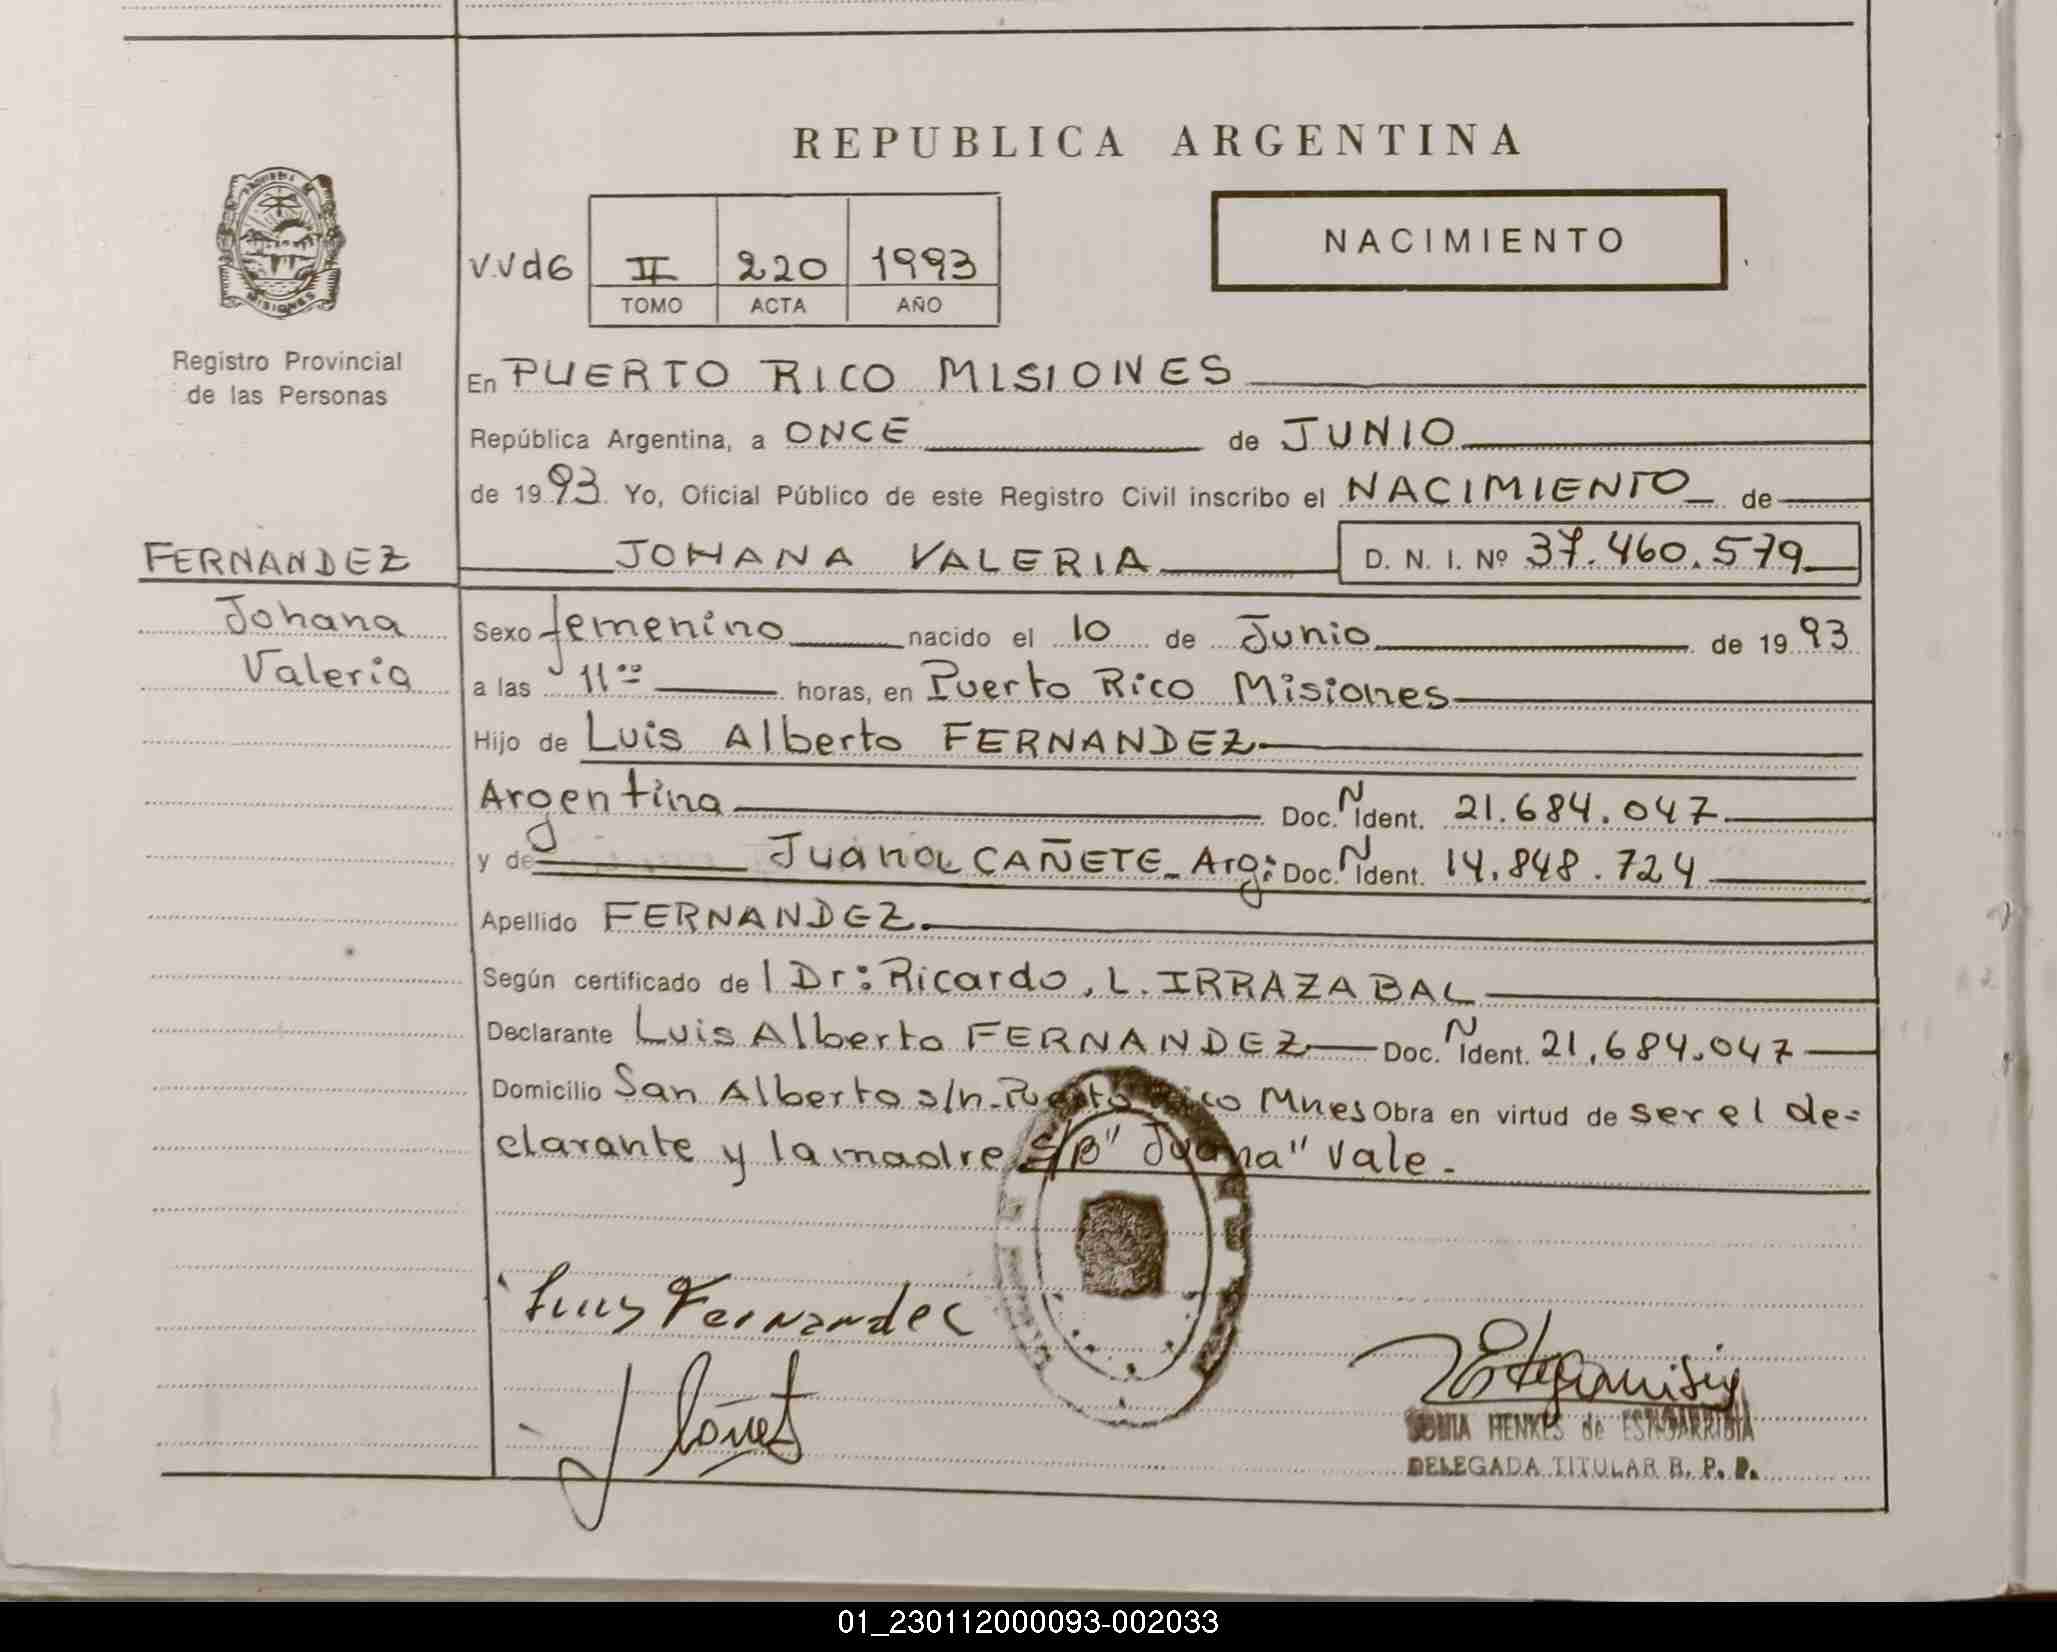 REPUBLICA ARGENTINA
NACIMIENTO
V.Vd6 II 220 1993
TOMO ACTA AÑO
MISIONES
Registro Provincial
de las Personas
En PUERTO RICO MISIONES
República Argentina, a ONCE de JUNIO
de 1993. Yo, Oficial Público de este Registro Civil inscribo el NACIMIENTO de
FERNANDEZ JOHANA VALERIA D. N. I. Nº 37.460.579
Johana Sexo femenino nacido el 10 de Junio de 1993
Valeria a las 11ºº horas, en Puerto Rico Misiones
Hijo de Luis Alberto FERNANDEZ
Argentina Doc. N Ident. 21.684.047
y de Juana CAÑETE_ Arg: Doc. N Ident. 14.848.724
Apellido FERNANDEZ.
Según certificado de l Dr: Ricardo, L. IRRAZABAL
Declarante Luis Alberto FERNANDEZ Doc. N Ident. 21.684.047
Domicilio San Alberto s/n-Puerto Rico Mnes Obra en virtud de ser el de=
clarante y la madre S/B" Juana" Vale.-
Luis Fernandec
J Cañet
SONIA HENKES de ESTIGARRIBIA
DELEGADA TITULAR R. P. P.
01_230112000093-002033